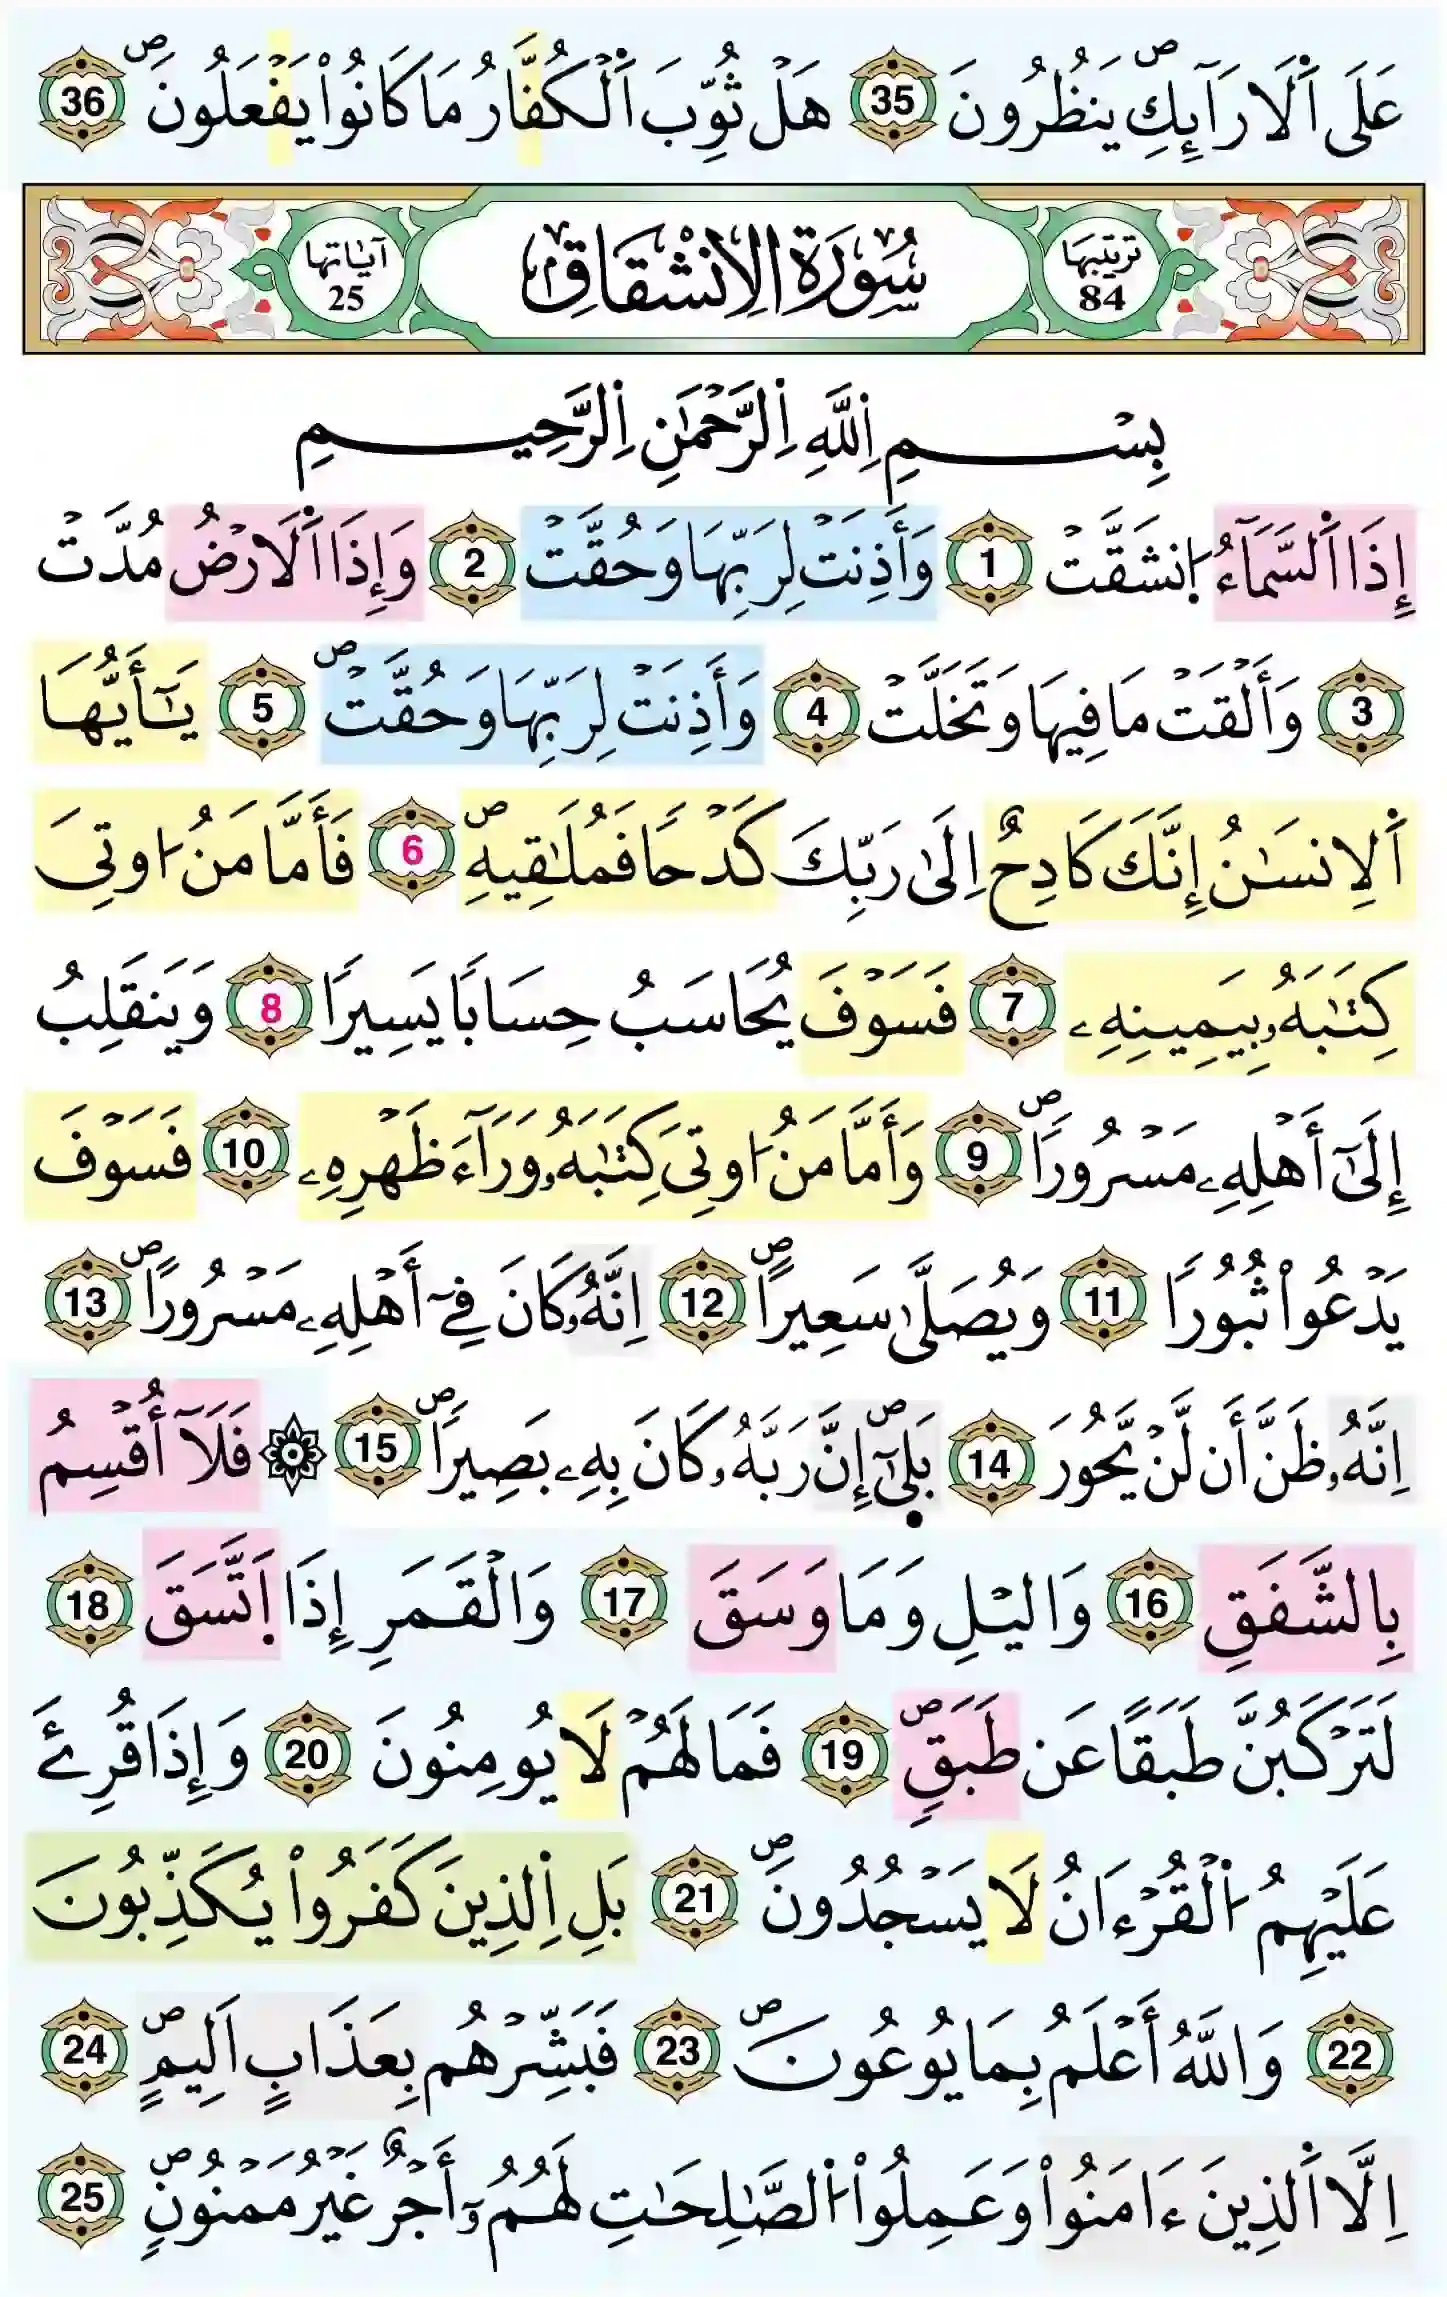 عَلَى اَ۬لَارَآئِكِ يَنظُرُونَۖ 35 هَلْ ثُوِّبَ اَ۬لْكُفَّارُ مَا كَانُواْ يَفْعَلُونَۖ 36
ترتيبها 84 سُورَةُ الِانْشِقَاقِ آيَاتها 25
بِسْمِ اِ۬للَّهِ اِ۬لرَّحْمَٰنِ اِ۬لرَّحِيمِ
إِذَا اَ۬لسَّمَآءُ اُ۪نشَقَّتْ 1 وَأَذِنَتْ لِرَبِّهَا وَحُقَّتْ 2 وَإِذَا اَ۬لَارْضُ مُدَّتْ
3 وَأَلْقَتْ مَا فِيهَا وَتَخَلَّتْ 4 وَأَذِنَتْ لِرَبِّهَا وَحُقَّتْۖ 5 يَٰٓأَيُّهَا
اَ۬لِانسَٰنُ إِنَّكَ كَادِحٌ اِلَىٰ رَبِّكَ كَدْحاً فَمُلَٰقِيهِۖ 6 فَأَمَّا مَنُ ا۟وتِيَ
كِتَٰبَهُۥ بِيَمِينِهِۦ 7 فَسَوْفَ يُحَاسَبُ حِسَاباً يَسِيراً 8 وَيَنقَلِبُ
إِلَىٰٓ أَهْلِهِۦ مَسْرُوراًۖ 9 وَأَمَّا مَنُ ا۟وتِيَ كِتَٰبَهُۥ وَرَآءَ ظَهْرِهِۦ 10 فَسَوْفَ
يَدْعُواْ ثُبُوراً 11 وَيُصَلَّىٰ سَعِيراًۖ 12 اِنَّهُۥ كَانَ فِےٓ أَهْلِهِۦ مَسْرُوراًۖ 13
اِنَّهُۥ ظَنَّ أَن لَّنْ يَّحُورَ 14 بَلَىٰٓۖ إِنَّ رَبَّهُۥ كَانَ بِهِۦ بَصِيراًۖ 15 ۞ فَلَآ أُقْسِمُ
بِالشَّفَقِ 16 وَاليْلِ وَمَا وَسَقَ 17 وَالْقَمَرِ إِذَا اَ۪تَّسَقَ 18
لَتَرْكَبُنَّ طَبَقاً عَن طَبَقٖۖ 19 فَمَا لَهُمْ لَا يُومِنُونَ 20 وَإِذَا قُرِئَ
عَلَيْهِمُ اُ۬لْقُرْءَانُ لَا يَسْجُدُونَۖ 21 بَلِ اِ۬لذِينَ كَفَرُواْ يُكَذِّبُونَ
22 وَاللَّهُ أَعْلَمُ بِمَا يُوعُونَۖ 23 فَبَشِّرْهُم بِعَذَابٍ اَلِيمٍۖ 24
اِلَّا اَ۬لذِينَ ءَامَنُواْ وَعَمِلُواْ اُ۬لصَّٰلِحَٰتِ لَهُمُۥٓ أَجْرٌ غَيْرُ مَمْنُونٍۖ 25